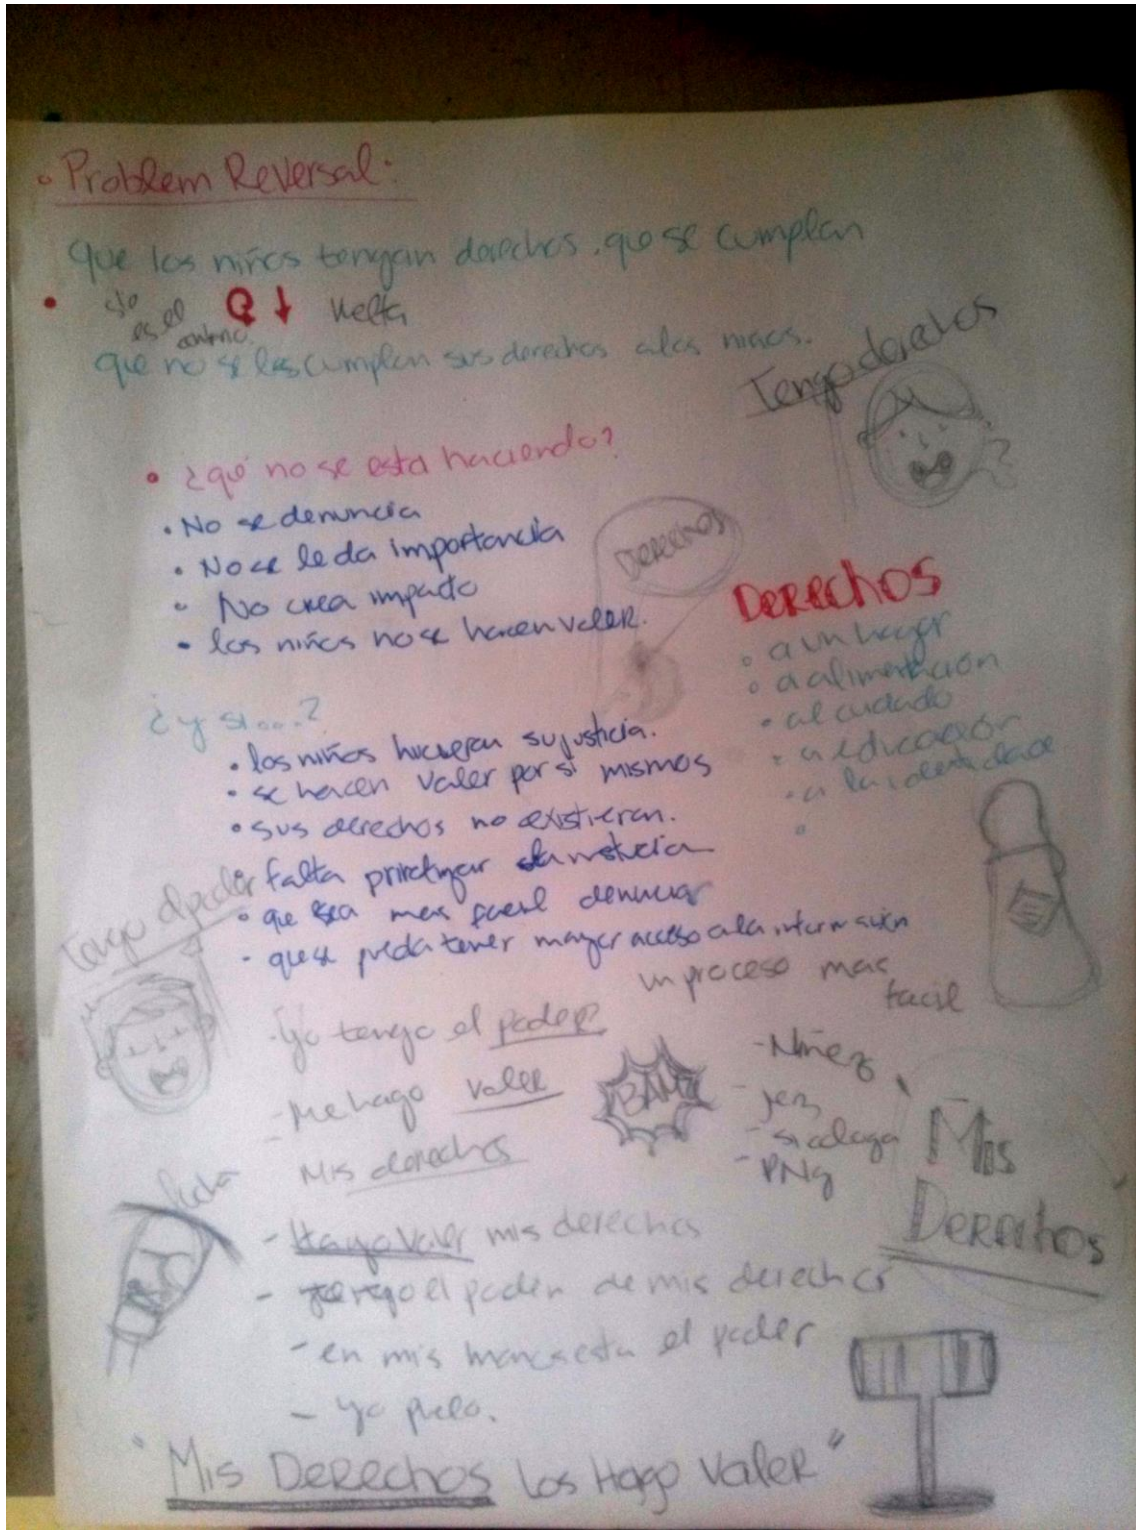 Problem Reversal:
que los niños tengan derechos, que se cumplan
es el
Vuelta
que no se les cumplan sus derechos a los niños.
Tengo derechos
¿qué no se esta haciendo?
• No se denuncia
• No se le da importancia
• No crea impacto
• los niños no se hacen valer.
DERECHOS
DERECHOS
• a un hogar
• a alimentación
• al cuidado
• a educación
• a la identidad
¿y si...?
• los niños hicieran su justicia.
• se hacen valer por si mismos
• sus derechos no existieran.
falta
• que sea mas facil denunciar
- que se pueda tener mayor acceso a la información
un proceso mas
facil
Tengo el poder
- Yo tengo el poder
- Me hago valer
Mis derechos
BAM
- Niñez
-
-
- PNG
Mis
DERECHOS
- Hago Valer mis derechos
- Tengo el poder de mis derechos
- en mis manos esta el poder
- yo puedo.
"MIS DERECHOS LOS HAGO VALER"